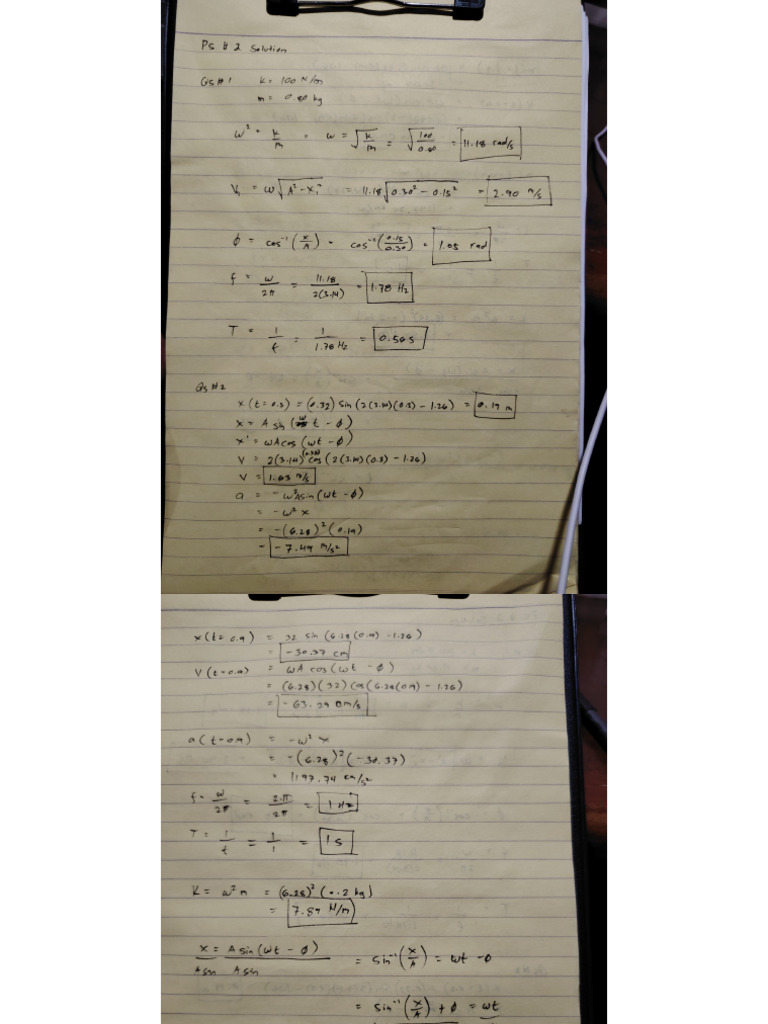 Ps # 2 Solution
Qs # 1 K = 100 N/m
m = 0.80 kg
ω² = k/m = ω = √(k/m) = √(100/0.80) = 11.18 rad/s
V₁ = ω√(A² - x₁²) = 11.18√(0.30² - 0.15²) = 2.90 m/s
φ = cos⁻¹(x/A) = cos⁻¹(0.15/0.30) = 1.05 rad
f = ω/2π = 11.18/2(3.14) = 1.78 Hz
T = 1/f = 1/1.78 Hz = 0.56 s
Qs # 2
x(t = 0.3) = (0.32) sin(2(3.14)(0.3) - 1.26) = 0.19 m
x = A sin(ωt - φ)
x' = ωA cos(ωt - φ)
V = 2(3.14)(0.32) cos(2(3.14)(0.3) - 1.26)
V = 1.63 m/s
a = -ω²A sin(ωt - φ)
= -ω²x
= -(6.28)²(0.19)
= -7.49 m/s²
x(t = 0.9) = 32 sin(6.28(0.9) - 1.26)
= -30.37 cm
V(t = 0.9) = ωA cos(ωt - φ)
= (6.28)(32) cos(6.28(0.9) - 1.26)
= -63.29 cm/s
a(t = 0.9) = -ω²x
= -(6.28)²(-30.37)
= 1197.74 cm/s²
f = ω/2π = 2π/2π = 1 Hz
T = 1/f = 1/1 = 1 s
K = ω²m = (6.28)²(0.2 kg)
= 7.89 N/m
x = A sin(ωt - φ) = sin⁻¹(x/A) = ωt - φ
A sin A sin
= sin⁻¹(x/A) + φ = ωt